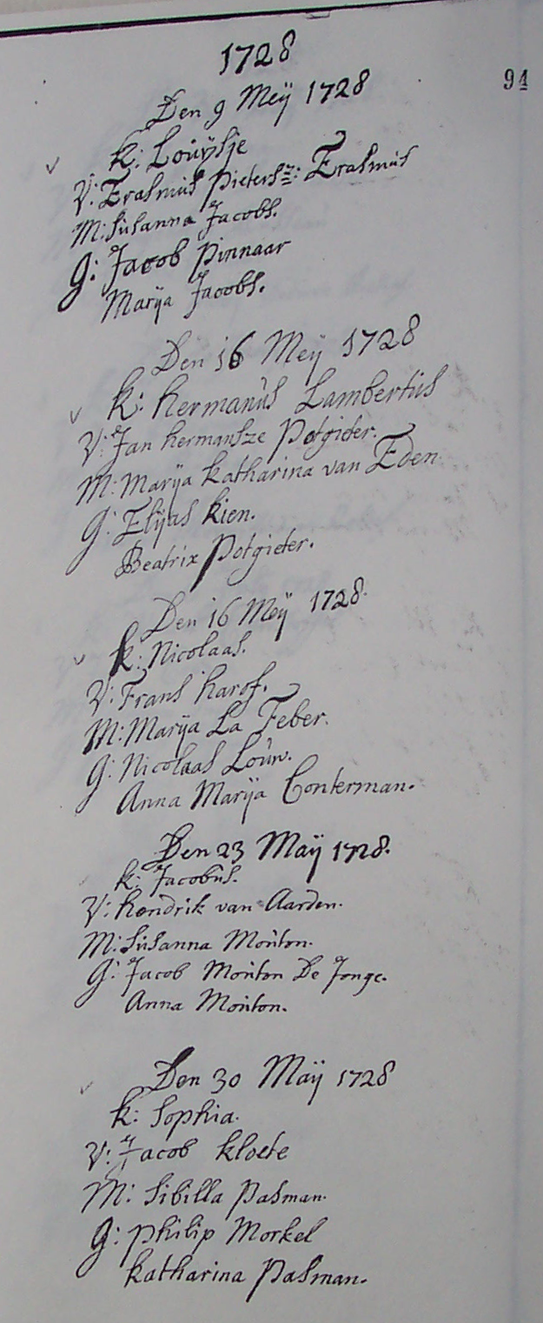 1728
94
Den 9 Meÿ 1728
K: Louÿsje
V: Erasmus Pietersz: Erasmus
M: Susanna Jacobs.
G: Jacob Pinnaar
Marÿa Jacobs.
Den 16 Meÿ 1728
K: Hermanus Lambertus
V: Jan Hermansze Potgieter.
M: Marÿa Katharina van Eden
G: Elÿas Kien.
Beatrix Potgieter.
Den 16 Meÿ 1728.
K: Nicolaas.
V: Frans Harof.
M: Marÿa La Feber.
G: Nicolaas Louw.
Anna Marÿa Conterman.
Den 23 Maÿ 1728.
K: Jacobus.
V: Hendrik van Aarden.
M: Susanna Mouton.
G: Jacob Mouton De Jonge.
Anna Mouton.
Den 30 Maÿ 1728
K: Sophia.
V: Jacob Kloete
M: Sibilla Pasman.
G: Philip Morkel
Katharina Pasman.